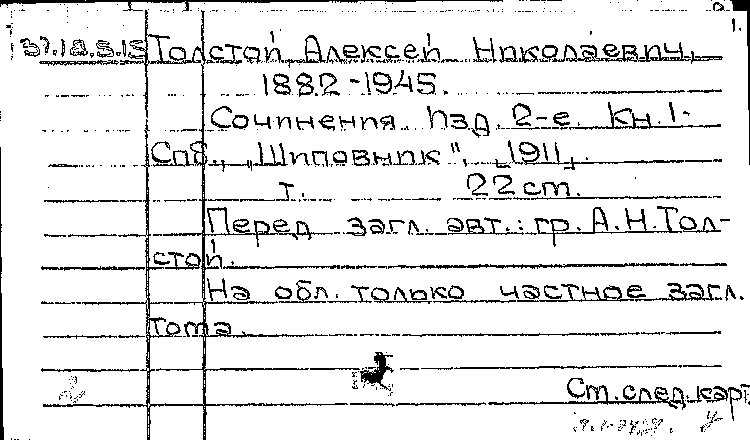 1.
37.18.5.15 Толстой, Алексей Николаевич,
1882-1945.
Сочинения. Изд. 2-е. Кн. 1-
Спб., "Шиповник", 1911.
т. 22 cm.
Перед загл. авт.: гр. А.Н. Тол-
стой.
На обл. только частное загл.
тома.
2
См. след. карт